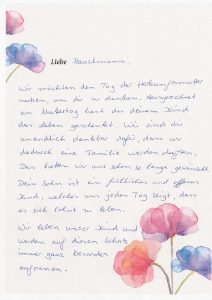 Liebe Bauchmama,
Wir möchten den Tag der Herkunftsmutter
nutzen, um dir zu danken. Ausgerechnet
am Muttertag hast du deinem Kind
das Leben geschenkt. Wir sind dir
unendlich dankbar dafür, dass wir
dadurch eine Familie werden durften.
Das hatten wir uns schon so lange gewünscht.
Dein Sohn ist ein fröhliches und offenes
Kind, welches uns jeden Tag zeigt, dass
es sich lohnt zu leben.
Wir lieben unser Kind und
werden auf diesen Schatz
immer ganz besonders
aufpassen.